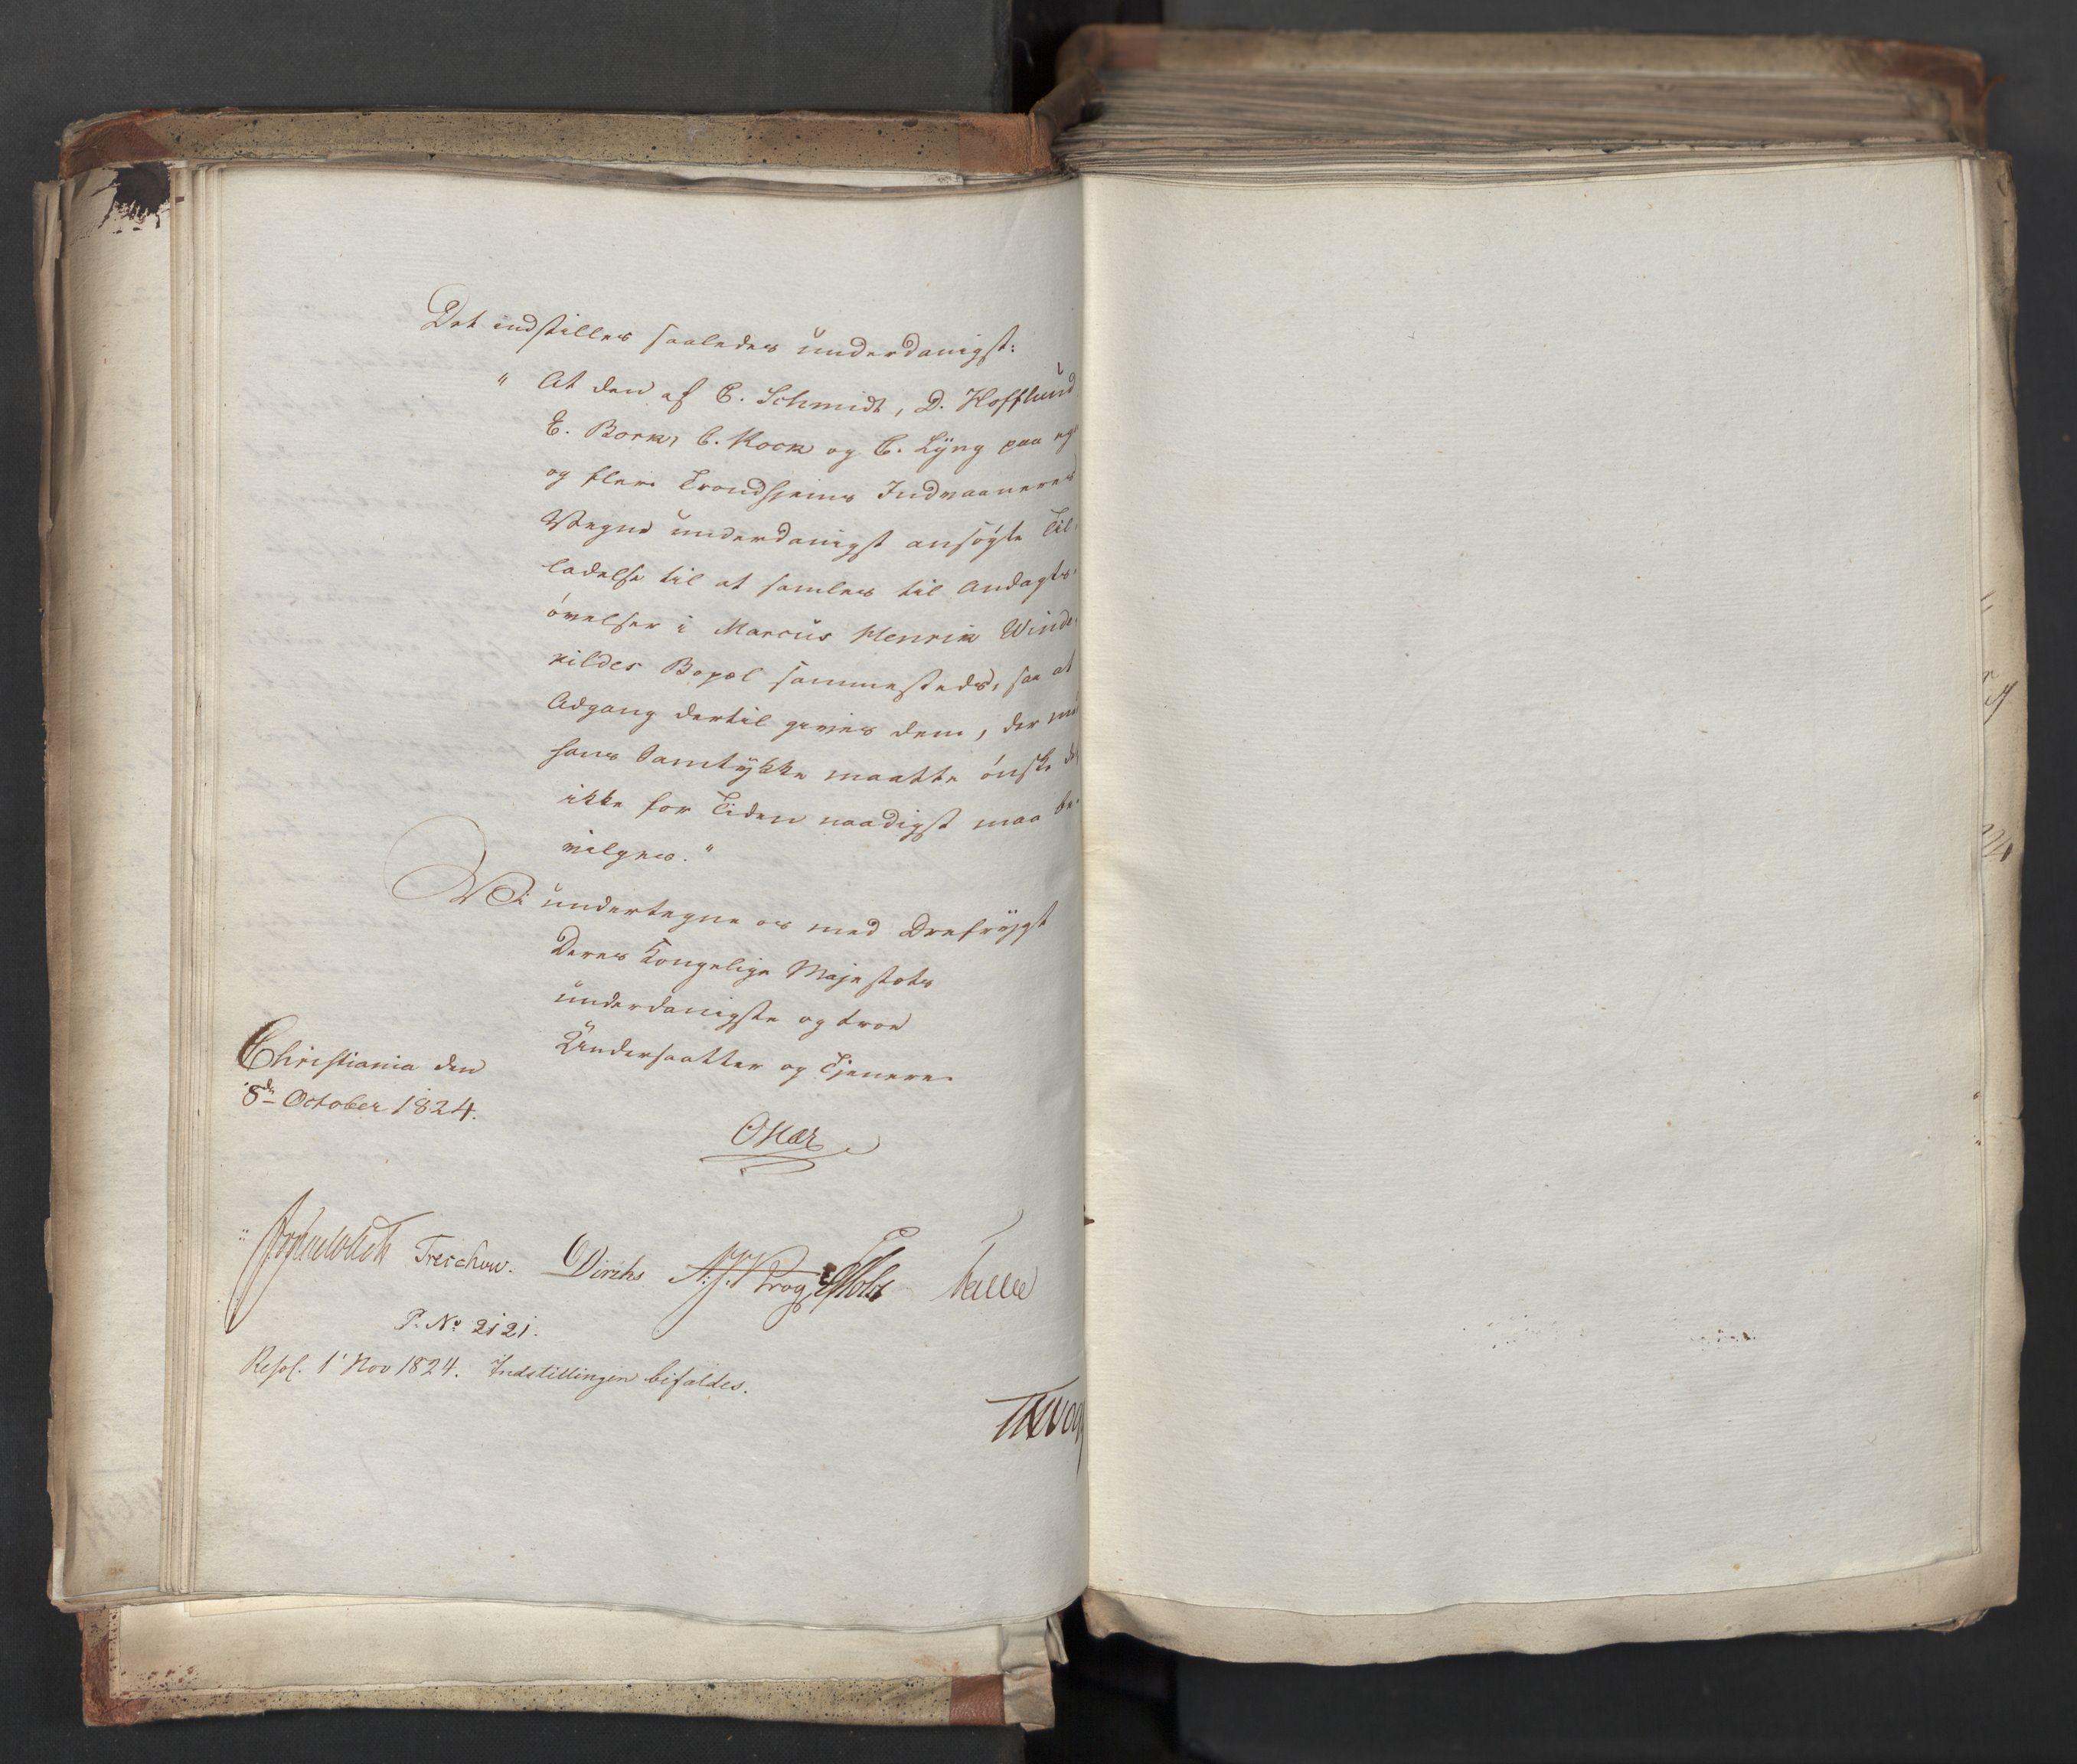 Det indstilles saaledes underdanigst:
" At den af C. Schmidt, D. Hofflund
E. Bork, C. Kock og C. Lyng paa egne
og flere Trondhjems Indvaaneres
Vegne underdanigst ansøgte Til-
ladelse til at samles til Andagts-
øvelser i Marcus Henrik Winde-
kildes Bopæl sammesteds, saa at
Adgang dertil gives dem, der med
hans Samtykke maatte ønske det,
ikke for Tiden naadigst maa be-
vilges."
Vi undertegne os med Dybfrygt
Deres Kongelige Majestæts
underdanigste og troe
Undersaatter og Tjenere.
Christiania den
8de October 1824.
Oscar
Treschow. Diriks A:J: Krog Holst Falbe
P. No 2121.
Resol. 1' Nov 1824. Indstillingen bifaldes.